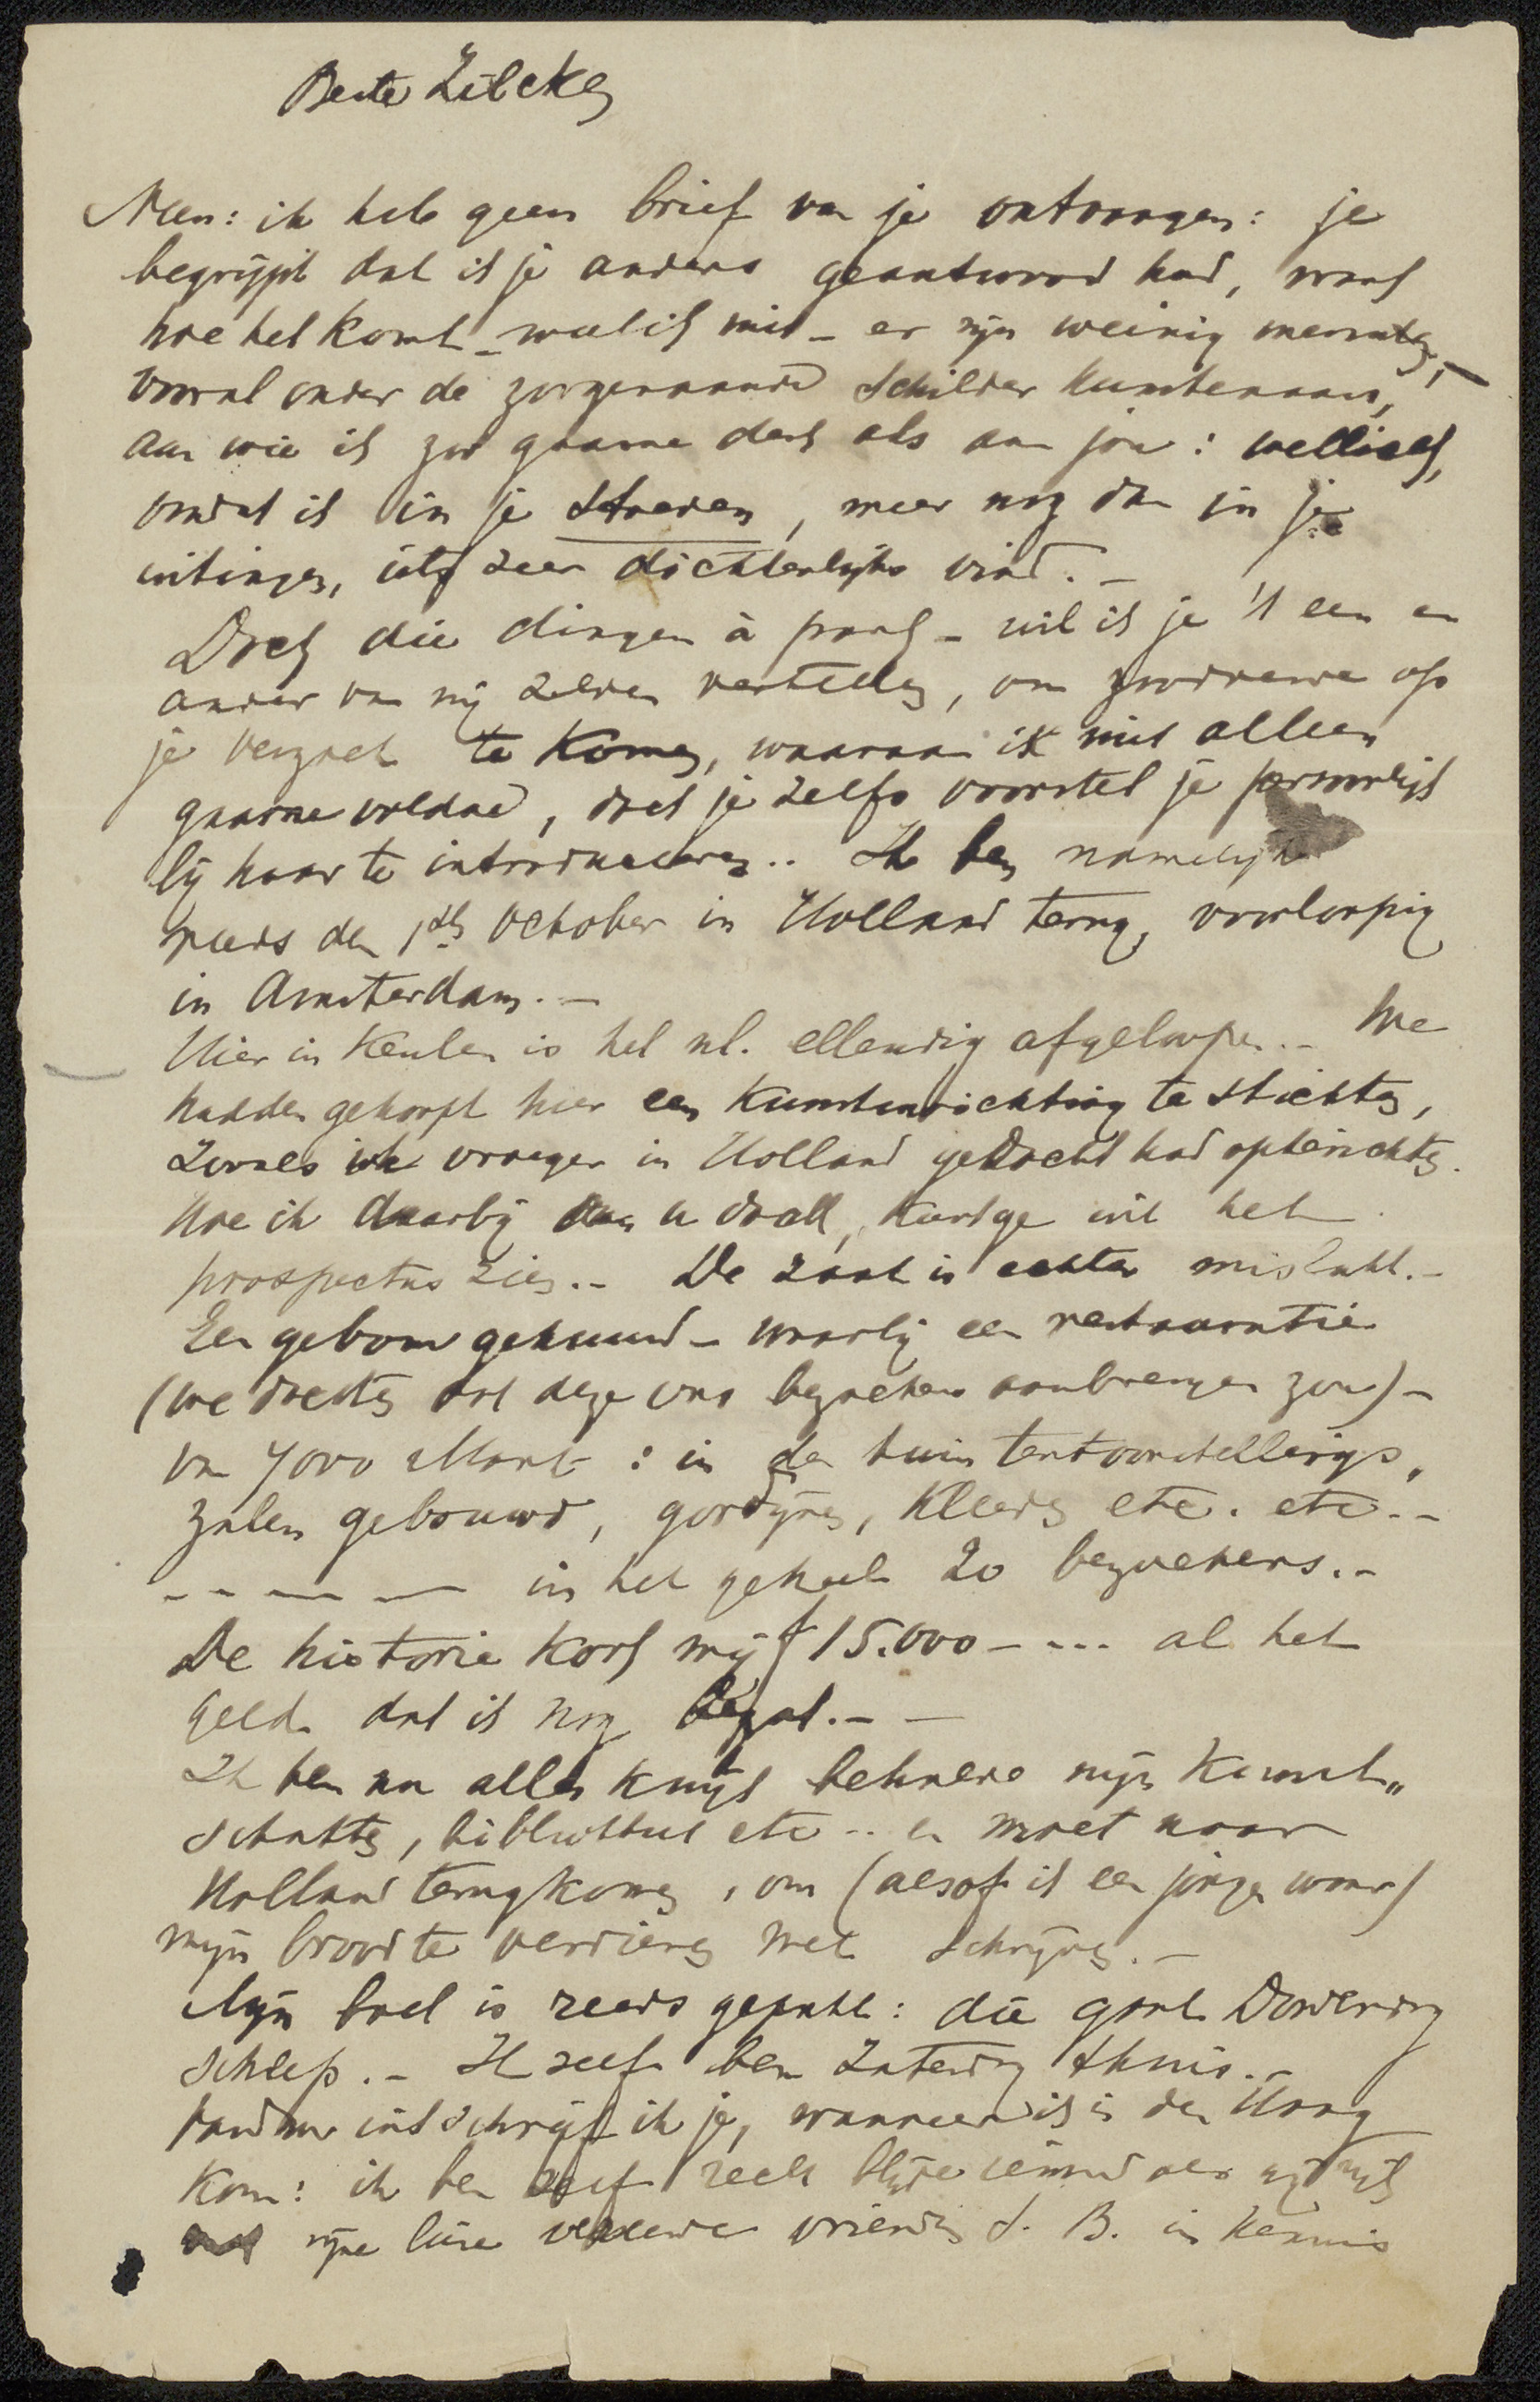 Beste Zilcken
Neen: ik heb geen brief van je ontvangen: je
begrijpt dat ik je anders geantwoord had, want
hoe het komt – weet ik niet – er zijn weinig menschen,
vooral onder de zoogenaamde Schilder Kunstenaars,
aan wie ik zoo gaarne denk als aan jou: wellicht,
omdat ik in je streven, meer nog dan in je
uitingen, iets zeer dichterlijks vind. –
Doch die dingen à part – wil ik je 't een en
ander van mij zelven vertellen, om zoodoende op
je verzoek te komen, waaraan ik niet alleen
gaarne voldoe, doch je zelfs voorstel je persoonlijk
bij haar te introduceeren.. Ik ben namelijk
reeds den 1sten October in Holland terug, voorloopig
in Amsterdam. –
Hier in Keulen is het nl. ellendig afgeloopen. – We
hadden gehoopt hier een Kunstinrichting te stichten,
zooals ik vroeger in Holland gedacht had opterichten.
Hoe ik daarbij te werk, kunt ge uit het
prospectus zien. – De zaak is echter mislukt. –
Een gebouw gehuurd – waarbij een restauratie
(we dachten dat deze ons bezoekers aanbrengen zou) –
van 7000 Mark: in den tuin tentoonstellings,
zalen gebouwd, gordijnen, kleeden etc. etc. –
– – – – in het geheel 20 bezoekers. –
De historie kost mij f 15.000 – ... al het
geld dat ik nog bezat. – –
Ik ben nu alles kwijt behalve mijn Kunst„
schatten, bibliotheek etc .. en moet naar
Holland terugkomen, om (alsof ik een jongen waar)
mijn brood te verdienen met schrijven. –
Mijn boel is reeds gepakt: die gaat Donderdag
scheep. – Ik zelf ben Zaterdag thuis. –
schrijf ik je, wanneer ik in den Haag
kom: ik ben zelf recht blijde iemand als
mijne lieve vriendin S. B. in kennis